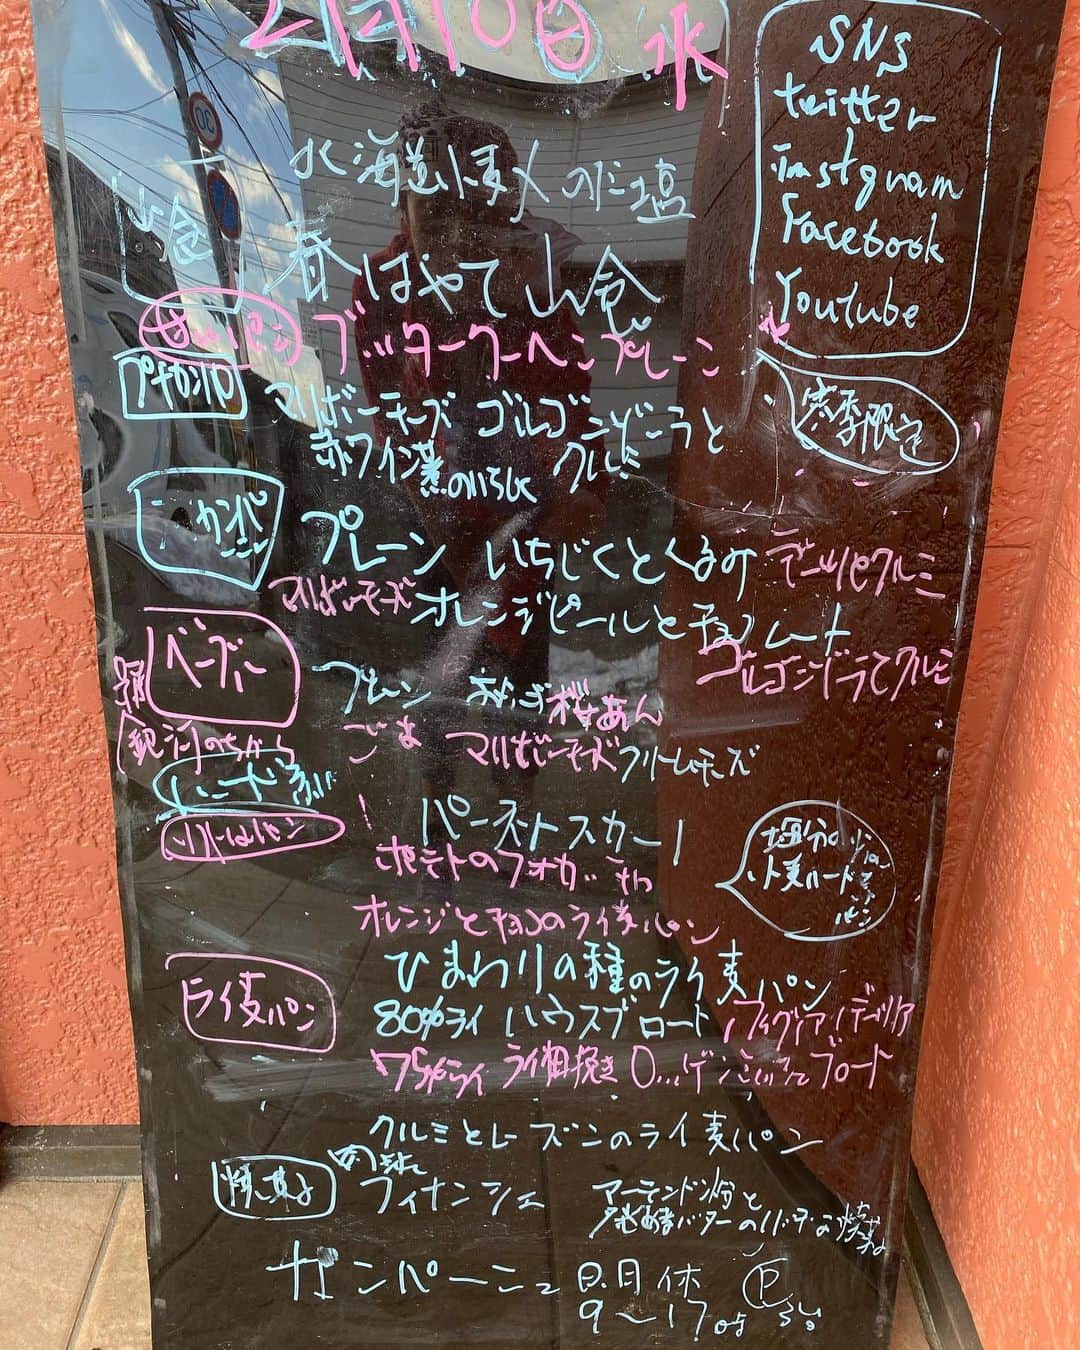 2月10日 水
SNS
twitter
instgram
Facebook
YouTube
北海道小麦 塩
山食
春はやて山食
ブッタークーヘンプレーン
プチカンパ
マルボーチーズ ゴルゴンゾーラと
赤ワイン煮のいちじく クルミ
季限定
カンパーニュ
プレーン いちじくとくるみ デーツとクルミ
マルボーチーズ オレンジピールとチョコレート
ゴルゴンゾーラとクルミ
ベーグル
プレーン 桜あん
ごま マルボーチーズ クリームチーズ
ハード系
パーネトスカーノ
ポテトのフォカッチャ
オレンジとチョコのライ麦パン
小麦ハード
パン
ライ麦パン
ひまわりの種のライ麦パン
80%ライ ハウスブロート
75%ライ ライ粗挽き ブロート
クルミとレーズンのライ麦パン
焼菓子
フィナンシェ
発酵バター 焼菓子
カンパーニュ 日.月 休 P
9〜17時